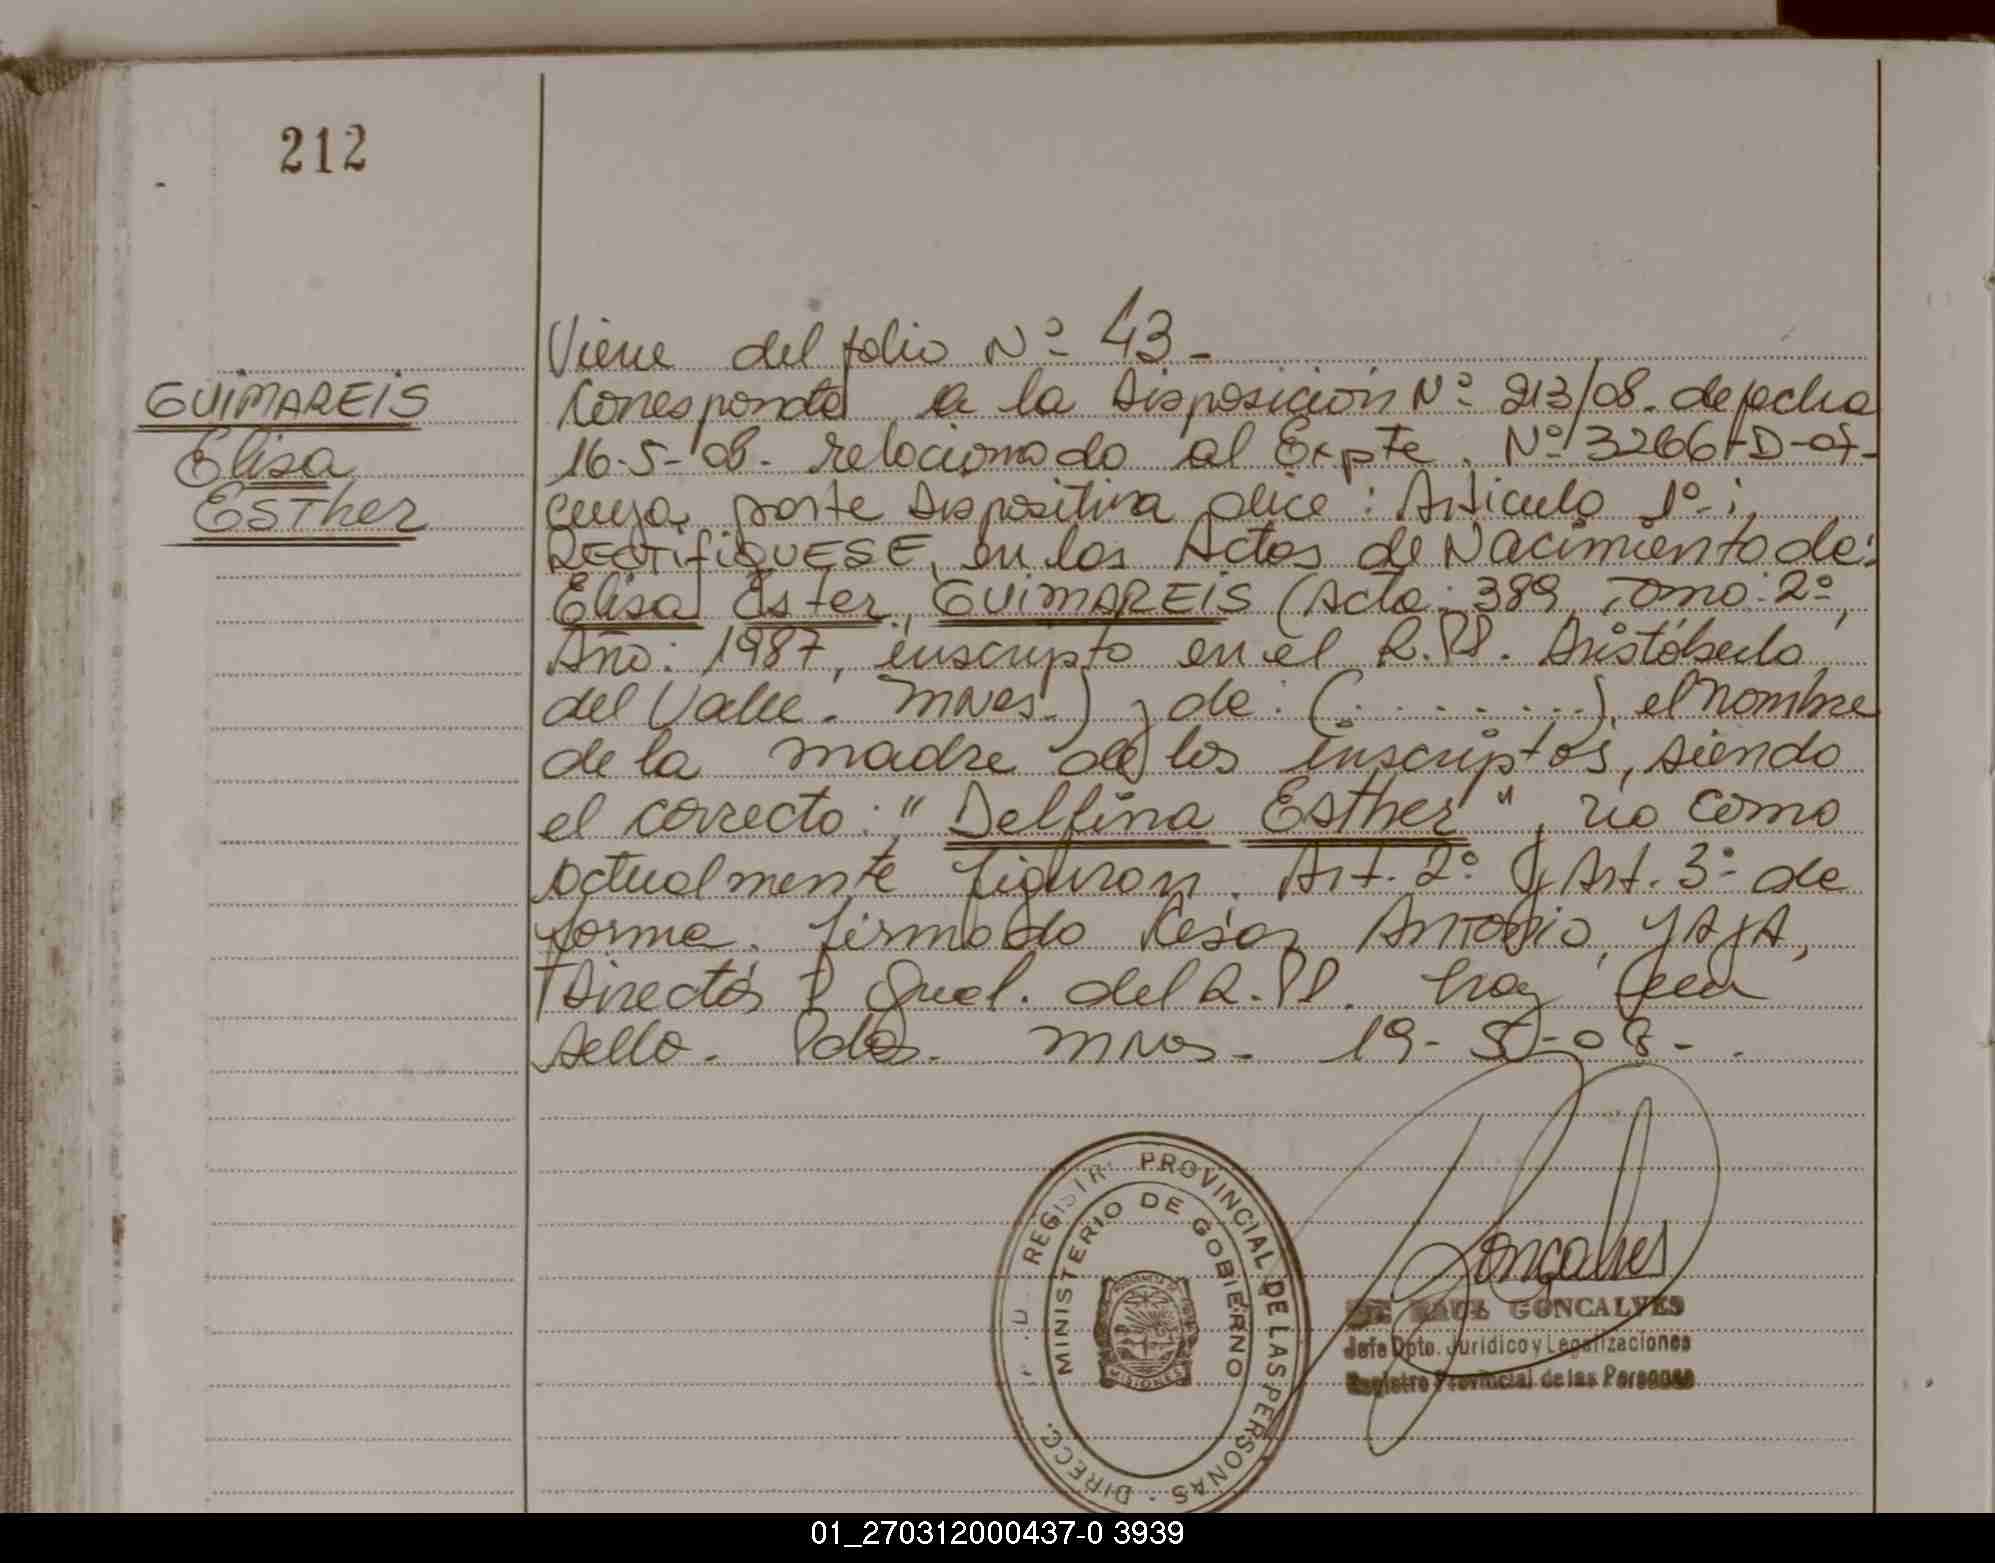 212
Viene del folio Nº 43-
GUIMAREIS
Elisa
Esther
Corresponde a la Disposición Nº 213/08. de fecha
16-5-08- relacionado al Expte. Nº 3266-D-07-
cuya parte dispositiva dice: Artículo 1º-:
RECTIFIQUESE, en las Actas de Nacimiento de:
Elisa Ester, GUIMAREIS (Acta: 389, Tomo: 2º,
Año: 1987, inscripto en el R.PP. Aristóbulo
del Valle. Mnes.) y de: (........), el nombre
de la madre de los inscriptos, siendo
el correcto: "Delfina Esther", no como
actualmente figuran. Art. 2º y Art. 3º de
forma. firmado César Antonio, YAYA,
Director Gral. del R.PP. hay un
sello. Pdas. Mnes. 19-5-08-.
DIRECC. REGISTR PROVINCIAL DE LAS PERSONAS -
MINISTERIO DE GOBIERNO
MISIONES
Goncalves
RAUL GONCALVES
Jefe Dpto. Jurídico y Legalizaciones
Registro Provincial de las Personas
01_270312000437-0 3939